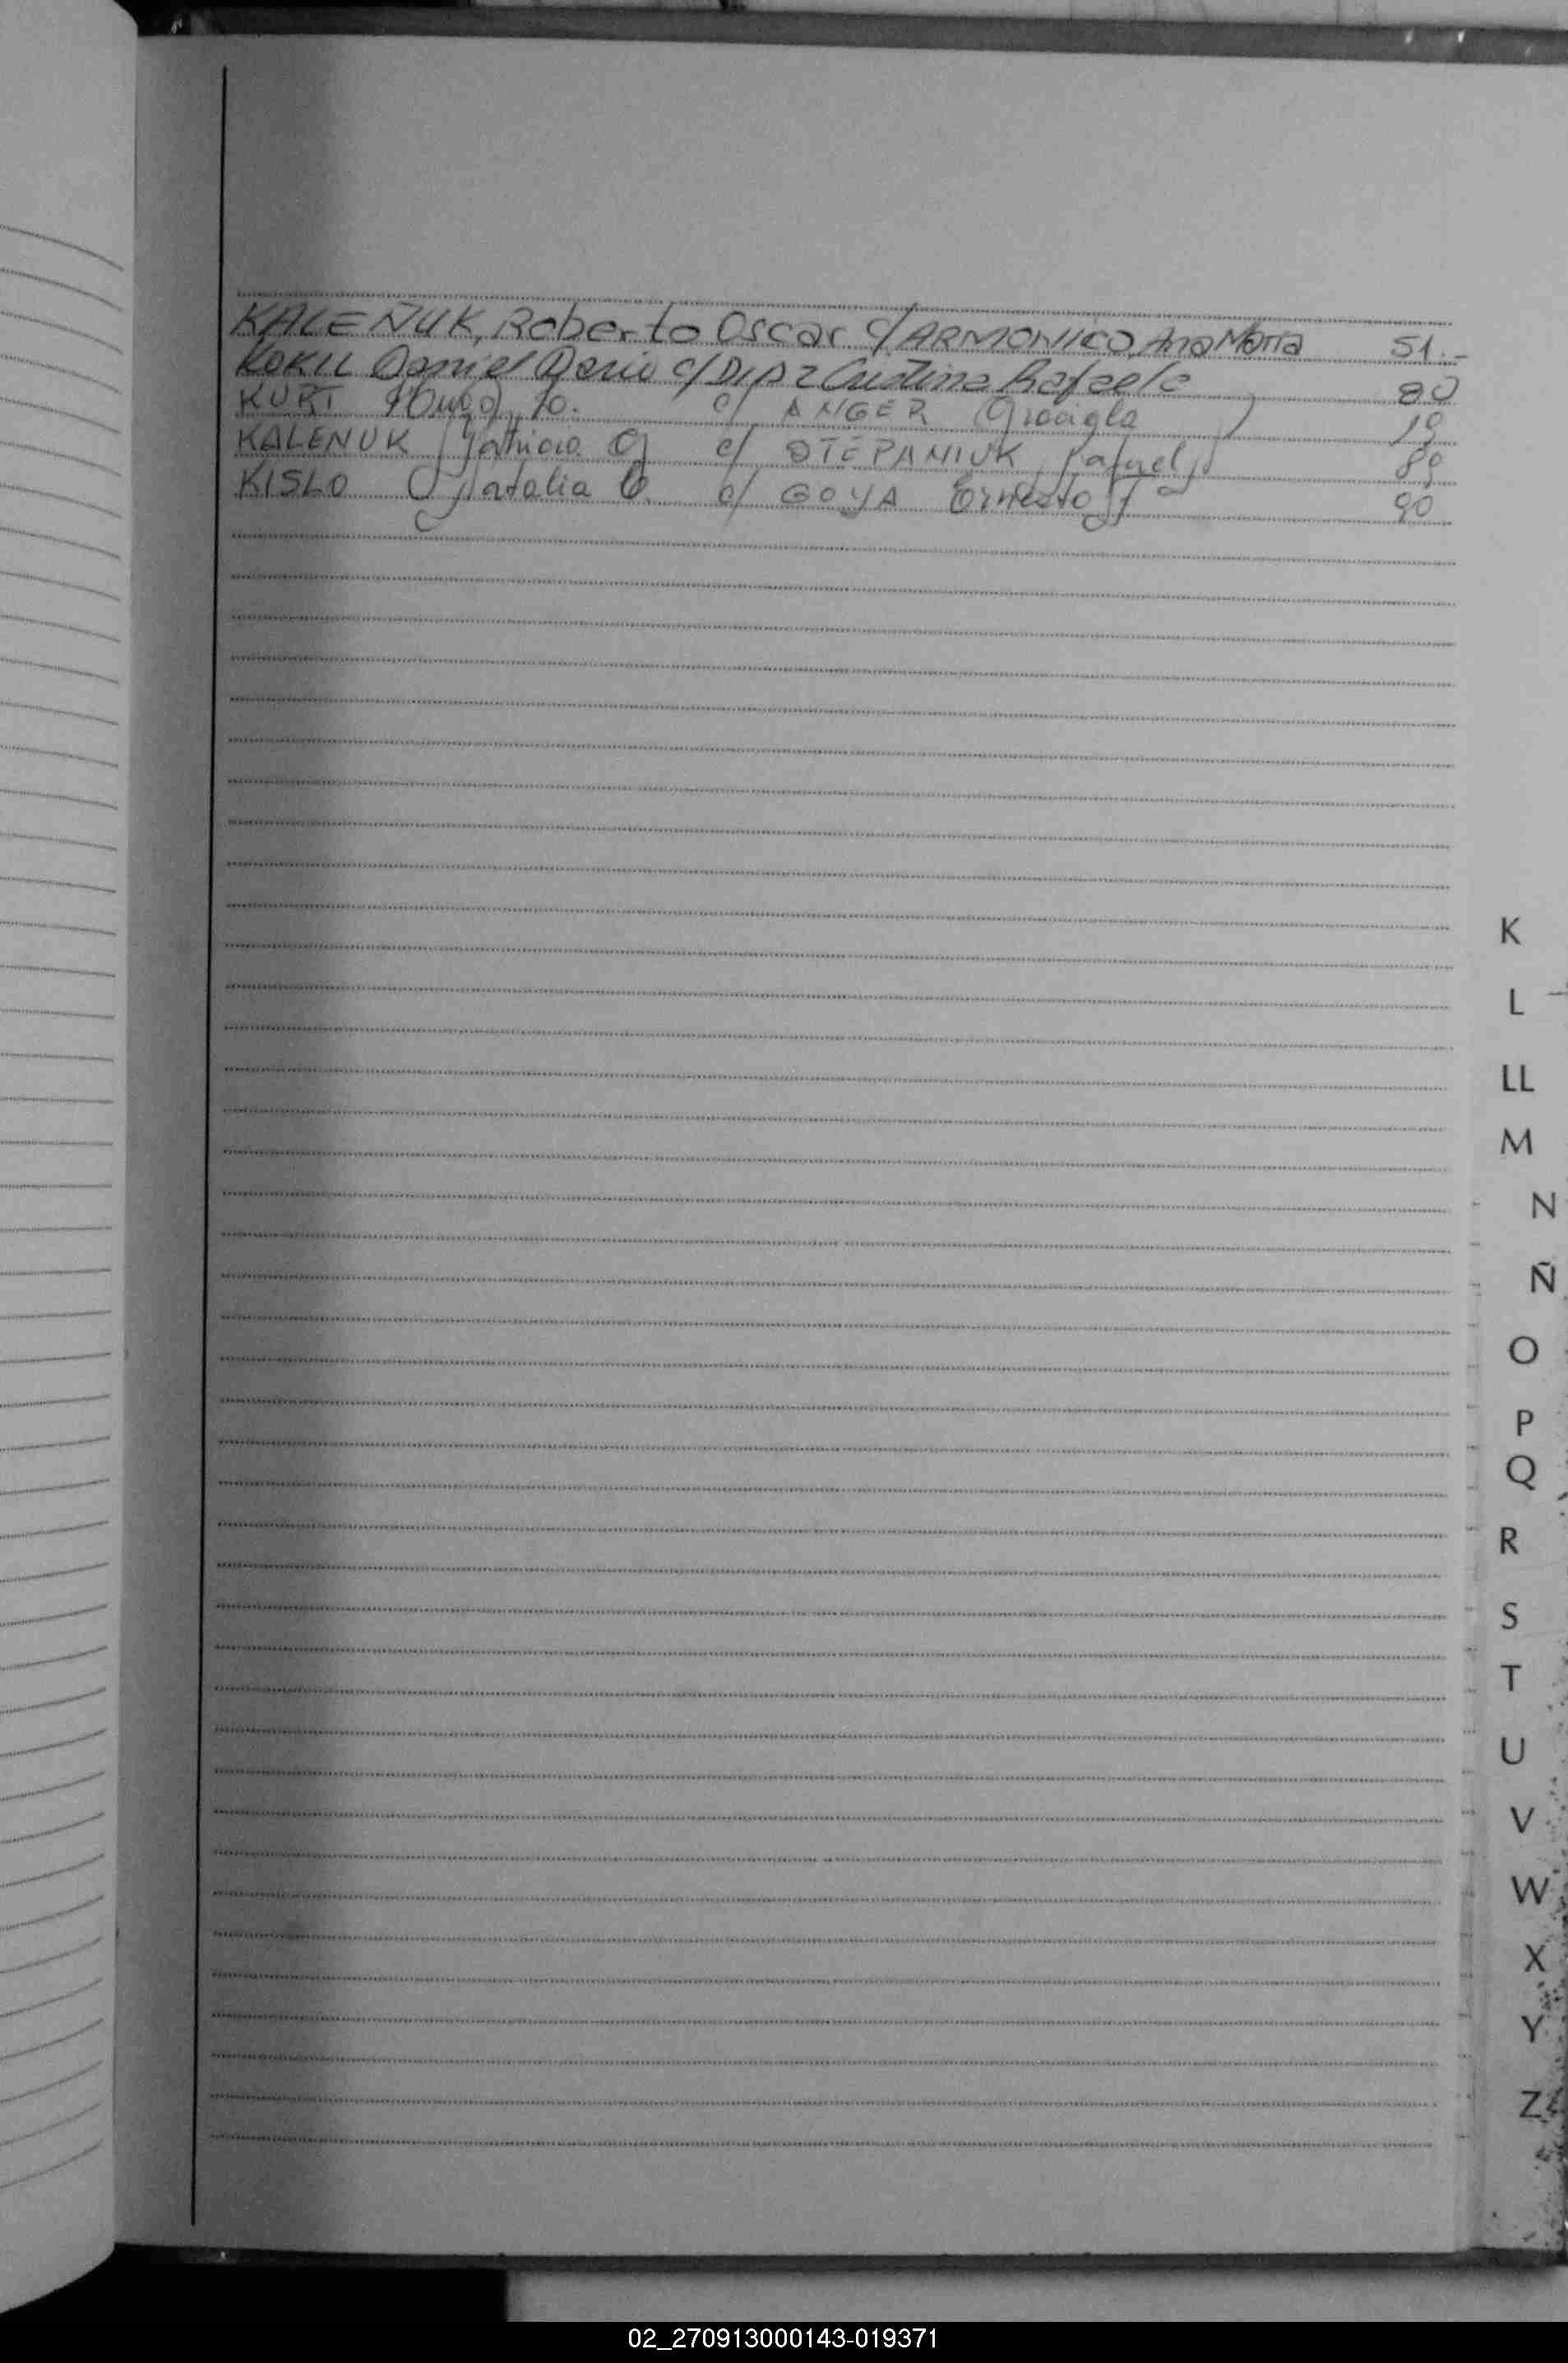 KALENUK, Roberto Oscar c/ ARMONICO, Ana Maria 51.-
KOKIL Daniel Dario c/ DIAZ Cristina Rafaela 80
KURT Hugo c/ ANGER 19
KALENUK Patricia c/ STEPANIUK Rafael 89
KISLO Natalia c/ GOYA Ernesto 90
K
L
LL
M
N
Ñ
O
P
Q
R
S
T
U
V
W
X
Y
Z
02_270913000143-019371